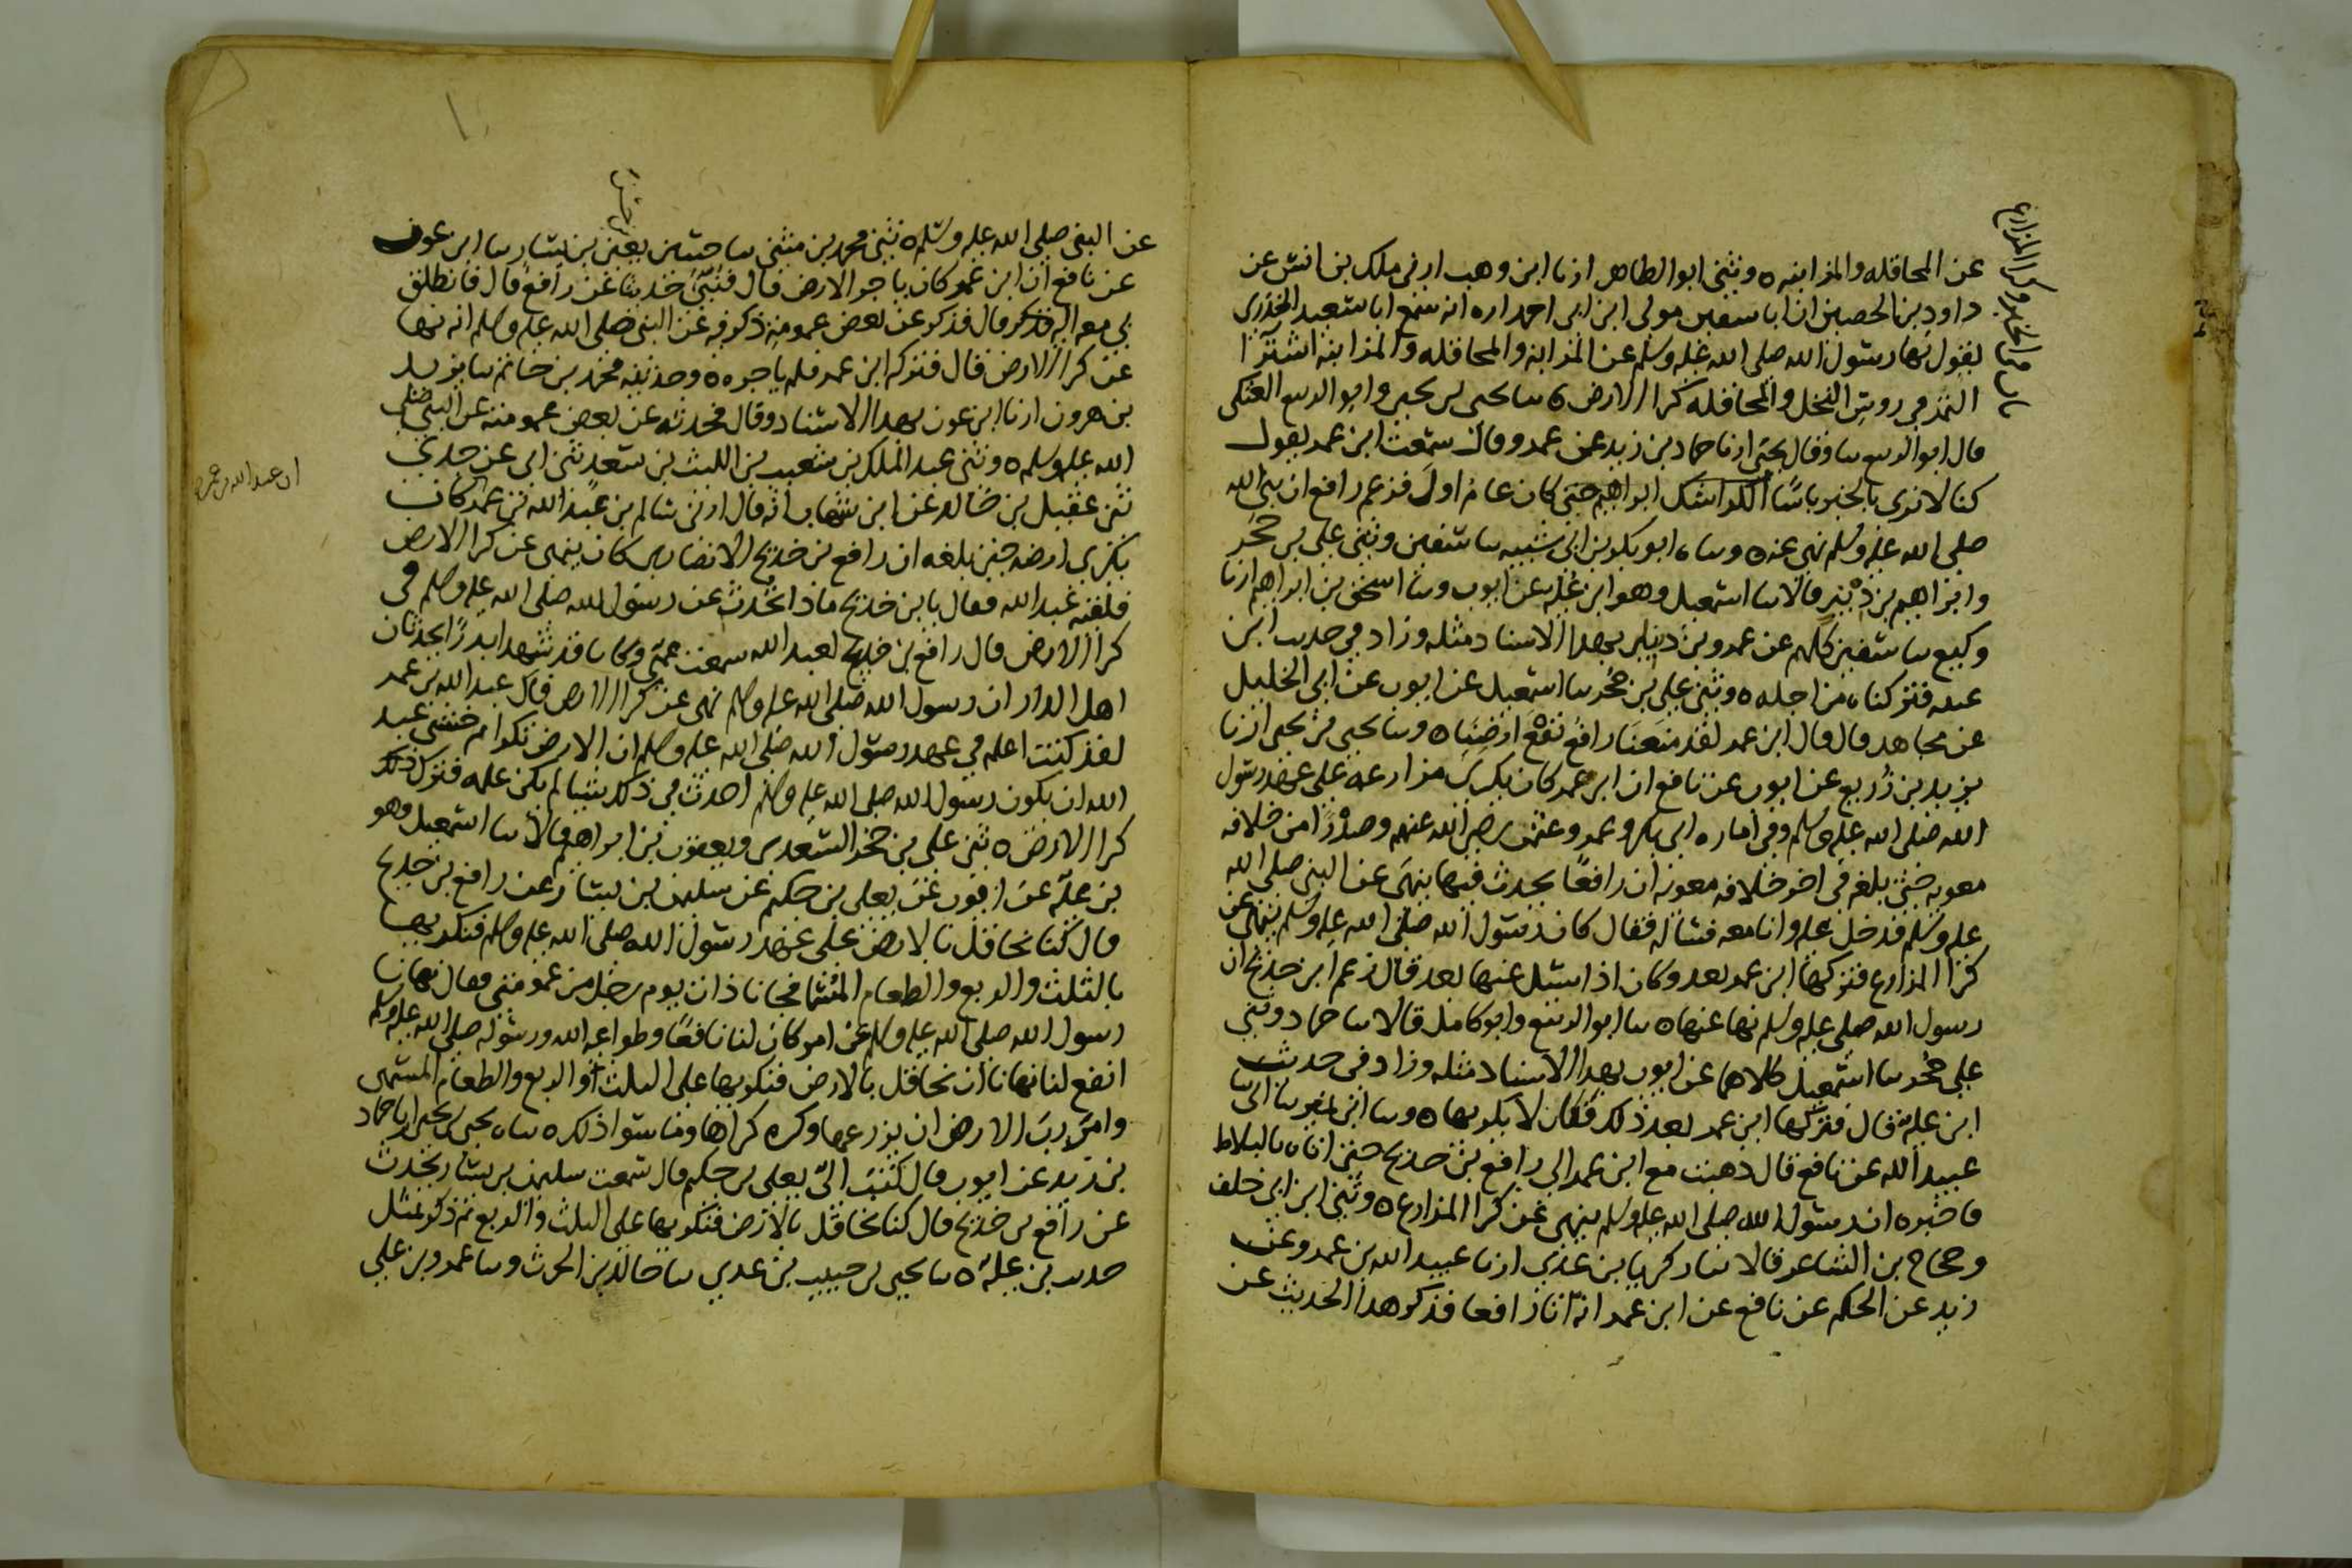 باب في المخابره وكرا المزارع
عن المحاقله والمزابنه ه وثني ابو الطاهر ارنا ابن وهب ارني ملك بن انس عن
داود بن الحصين ان ابا سفين مولى ابن ابي احمد اره انه سمع ابا سعيد الخدري
يقول نها رسول الله صلى الله عليه وسلم عن المزابنه والمحاقله والمزابنه اشترا
الثمر في روس النخل والمحاقله كرا الارض ه سا يحيى بن يحيى وابو الربيع العتكي
قال ابو الربيع سا وقال يحيى ارنا حماد بن زيد عن عمرو قال سمعت ابن عمر يقول
كنا لا نرى بالخبر باسًا حتى كان عام اول فزعم رافع ان نبي الله
صلى الله عليه وسلم نهى عنه ه وساه ابو بكر بن ابي شيبه سا سفين وثني علي بن حجر
وابراهيم بن دينر قالا سا اسمعيل وهو ابن عليه عن ايوب وسا اسحق بن ابراهيم ارنا
وكيع سا سفين كلهم عن عمرو بن دينار بهذا الاسناد مثله وزاد في حديث ابن
عيينه فتركناه من اجله ه وثني علي بن حجر سا اسمعيل عن ايوب عن ابي الخليل
عن مجاهد قال قال ابن عمر لقد منعنا رافع نفع ارضنا ه وسا يحيى بن يحيى ارنا
يزيد بن زريع عن ايوب عن نافع ان ابن عمر كان يكري مزارعه على عهد رسول
الله صلى الله عليه وسلم وفي اماره ابي بكر وعمر وعثمن رضي الله عنهم وصدرًا من خلافه
معويه حتى بلغه في اخر خلافه معويه ان رافعًا يحدث فيها بنهي عن النبي صلى الله
عليه وسلم فدخل عليه وانا معه فساله فقال كان رسول الله صلى الله عليه وسلم ينهى عن
كرا المزارع فتركها ابن عمر بعد وكان اذا سئل عنها بعد قال زعم ابن خديج ان
رسول الله صلى عليه وسلم نها عنها ه سا ابو الربيع وابو كامل قالا سا حماد وثني
علي حجر سا اسمعيل كلاهما عن ايوب بهذا الاسناد مثله وزاد في حديث
ابن عليه قال فتركها ابن عمر بعد ذلك فكان لا يكريها ه وسا ابن نمير سا ابي سا
عبيد الله عن نافع قال ذهبت مع ابن عمر الى رافع بن خديج حتى اتاه بالبلاط
فاخبره ان رسول الله صلى الله عليه وسلم ينهى عن كرا المزارع ه وثني ابن ابي خلف
وحجاج بن الشاعر قالا سا زكريا بن عدي ارنا عبيد الله بن عمرو عن
زيد عن الحكم عن نافع عن ابن عمر انه اتا رافعا فذكر هذا الحديث عن
عن النبي صلى الله عليه وسلم ه ثني محمد بن مثنى سا حسين يعني بن يسار سا ابن عون
عن نافع ان ابن عمر كان ياجر الارض قال فنبئ حديثا عن رافع قال فانطلق
بي معه اليه قال فذكر عن بعض عمومته ذكر فيه عن النبي صلى الله عليه وسلم انه نها
عن كرا الارض قال فتركه ابن عمر فلم ياجره ه وحدثنيه محمد بن حاتم سا يزيد
بن هرون ارنا ابن عون بهذا الاسناد وقال فحدثه عن بعض عمومته عن النبي صلى
الله عليه وسلم ه وثني عبد الملك بن شعيب بن الليث بن سعد ثني ابي عن جدي
ثني عقيل بن خالد عن ابن شهاب انه قال ارني سالم بن عبد الله بن عمر كان
ان عبد الله بن عمر
يكري ارضه حين بلغه ان رافع بن خديج الانصاري كان ينهى عن كرا الارض
فلقيه عبد الله فقال يا بن خديج ماذا تحدث عن رسول الله صلى الله عليه وسلم في
كرا الارض قال رافع بن خديج لعبد الله سمعت عمي وكانا قد شهدا بدرًا يحدثان
اهل الدار ان رسول الله صلى الله عليه وسلم نهى عن كرا الارض قال عبد الله بن عمر
لقد كنت اعلم في عهد رسول الله صلى الله عليه وسلم ان الارض تكرا ثم خشي عبد
الله ان يكون رسول الله صلى الله عليه وسلم احدث في ذلك شيئا لم يكن علمه فترك ذلك
كرا الارض ه ثني علي بن حجر السعدي ويعقوب بن ابراهيم قالا سا اسمعيل وهو
بن عليه عن ايوب عن يعلى بن حكيم عن سليمن بن يسار عن رافع بن خديج
قال كنا نحاقل بالارض على عهد رسول الله صلى الله عليه وسلم فنكريها
بالثلث والربع والطعام المسما فجانا ذات يوم رجل من عمومتي فقال نهانا
رسول الله صلى الله عليه وسلم عن امر كان لنا نافعًا وطواعيه الله ورسوله صلى الله عليه وسلم
انفع لنا نهانا ان نحاقل بالارض فنكريها على الثلث او الربع والطعام المسمى
وامر رب الارض ان يزرعها وكره كراها وما سوا ذلك ه ساه يحيى بن يحيى ارنا حماد
بن زيد عن ايوب قال كتب الي يعلى بن حكيم قال سمعت سليمن بن يسار يحدث
عن رافع بن خديج قال كنا نحاقل بالارض فنكريها على الثلث والربع ثم ذكر بمثل
حديث بن عليه ه سا يحيى بن حبيب بن عدي سا خالد بن الحرث وسا عمرو بن علي